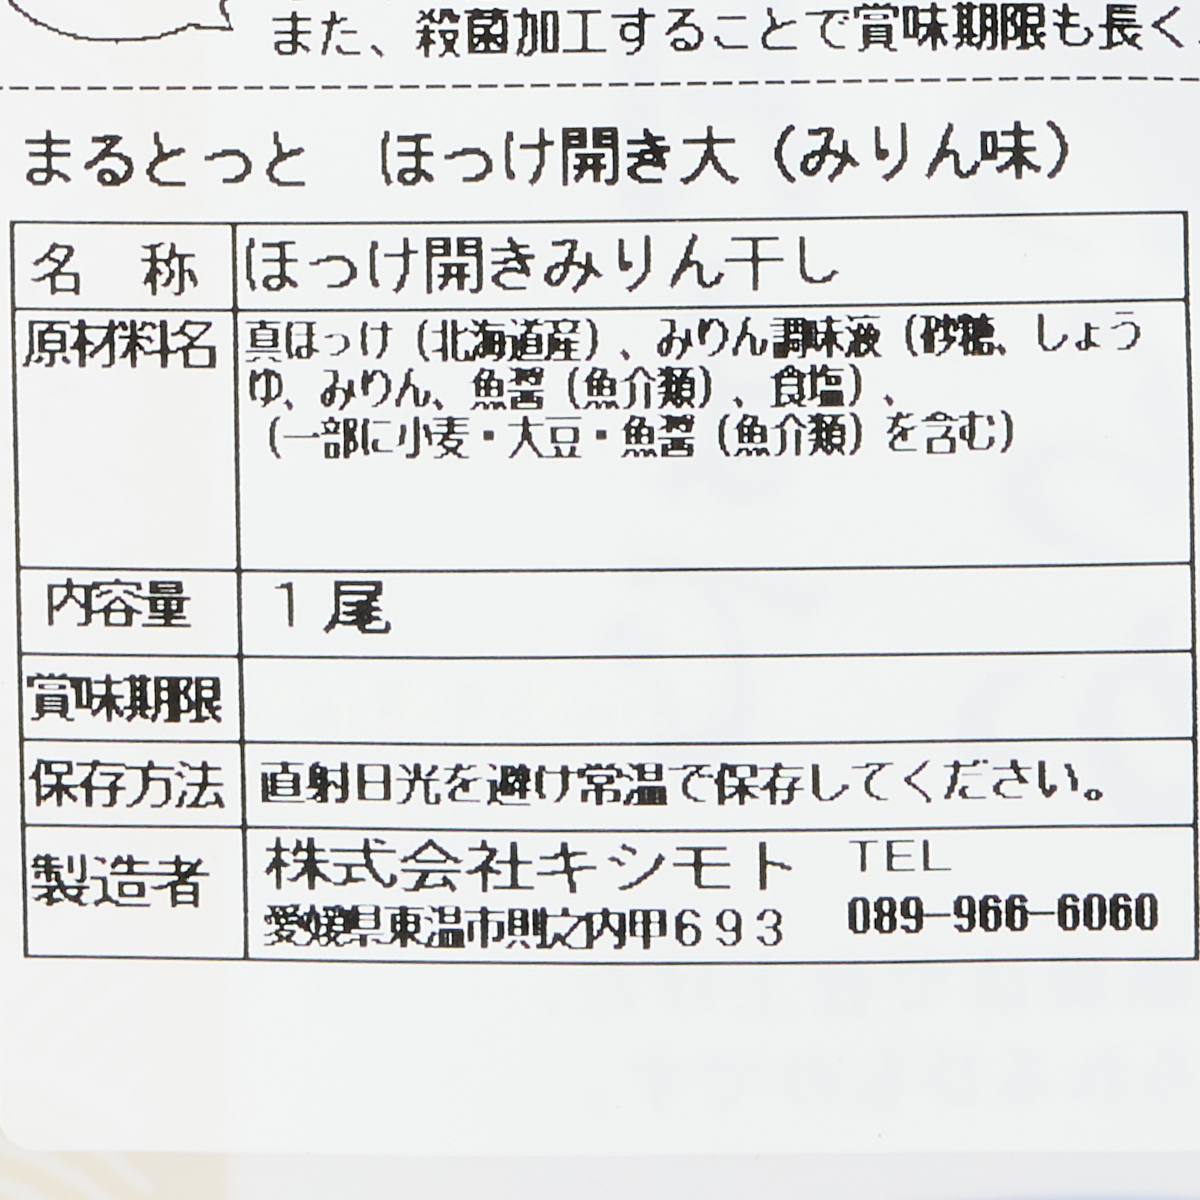 また、殺菌加工することで賞味期限も長く、
まるとっと　ほっけ開き大（みりん味）
名　称　ほっけ開きみりん干し
原材料名　真ほっけ（北海道産）、みりん調味液（砂糖、しょう
ゆ、みりん、魚醤（魚介類）、食塩）、
（一部に小麦・大豆・魚醤（魚介類）を含む）
内容量　１尾
賞味期限
保存方法　直射日光を避け常温で保存してください。
製造者　株式会社キシモト　TEL
愛媛県東温市則之内甲６９３　089-966-6060